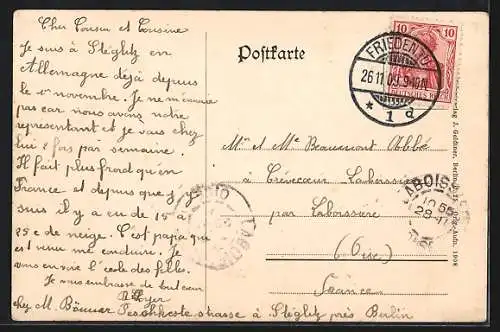 Cher Cousin et Cousine
Je suis à Stéglitz en
Allemagne déjà depuis
le 1er novembre. Je ne m'ennuie
pas car nous avons notre
représentant et je vais chez
lui 2 fois par semaine.
Il fait plus froid qu'en
France et depuis que j'y
suis il y a eu de 15 à
25 c de neige. C'est papa qui
est venu me conduire. Je
vous envoie l'école des filles.
Je vous embrasse de tout cœur
chez M. Peschkestrasse à Stéglitz près Berlin
Postkarte
10 10
DEUTSCHES REICH
FRIEDENAU
26.11.09. 9-10N.
* 1 d
Mr et Me Beaumont Abbé
à Crèvecœur Laboissière
par Laboissière
(Oise)
France
LABOISS
10 55
28-11
OISE